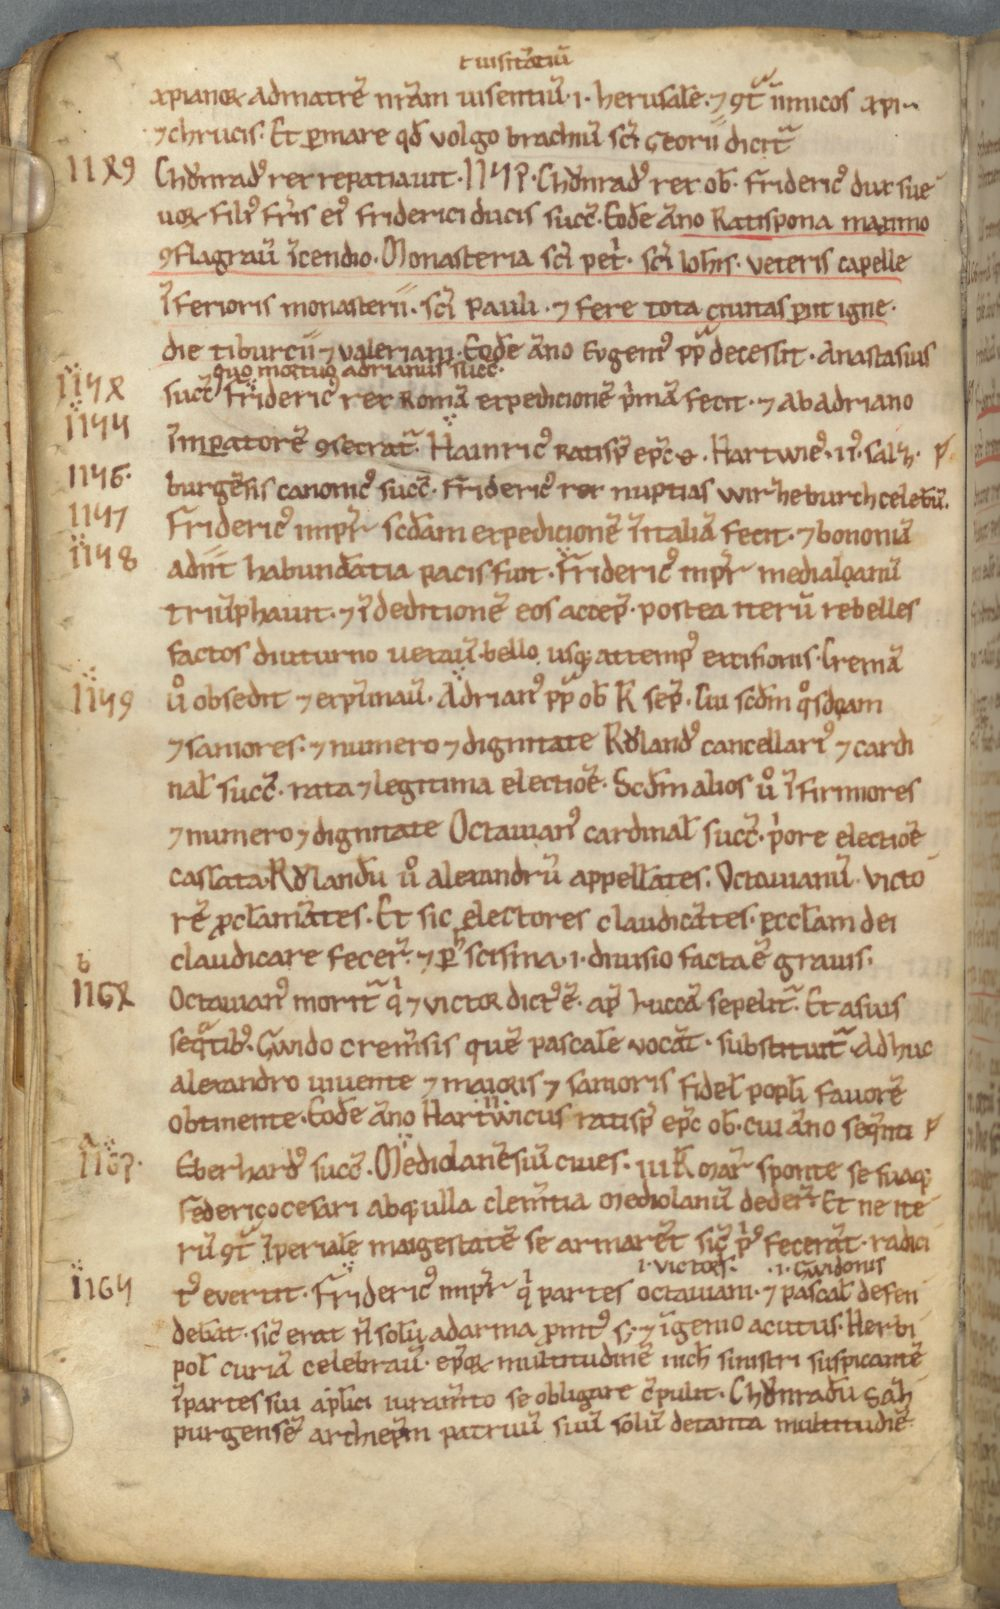 ł uisitātiū
xp̄ianoꝝ ad matrē nr̄am uisentiū · i · herusalē · ⁊ ꝯt̄ inimicos xp̄i
⁊ chrucis · Et ꝑ mare qđ volgo brachiū sc̄i Georii dicit᷑
1149 Chŏnradꝰ rex repatiauit · 1152 · Chŏnradꝰ rex ob̄ · fridericꝰ dux sue
uoꝝ filiꝰ fr̄is eiꝰ friderici ducis succ̄ · Eodē āno Ratispona maximo
ꝯflagrau̅ īcendio · Monasteria sc̄i pet̓ · sc̄i Ioh̄is · veteris capelle
īferioris monasterii · sc̄i pauli · ⁊ fere tota ciuitas ꝑiit igne ·
die tiburcii ⁊ valeriani · Eodē āno Eugeniꝰ pp̄ decessit · Anastasius
quo mortuo adrianus succ̄ ·
succ̄ fridericꝰ rex Romā expedicionē p̓mā fecit · ⁊ ab adriano
1155 īmꝑatorē ꝯsecrat᷑ · Hainricꝰ Ratisp̄ ep̄c · Hartwicꝰ · salz
1156 · burgēsis canonicꝰ succ̄ · fridericꝰ rex nuptias wirzheburch celebͣū ·
1157 Fridericꝰ imp̄r scđam expedicionē ī italiā fecit · ⁊ bononiā
1158 adiit habundātia pacis fuit · fridericꝰ imp̄r mediaḷanū
triūphauit · ⁊ ī deditionē eos accep̄ · postea iterū rebelles
factos diuturno uexau̅ bello usqꝫ ad temp᷒ excisionis · Cremā
1159 u̓o obsedit ⁊ expugnau̅ · Adrianꝰ pp̄ ob̄ K̄ sep̄ · Cui scđm qͦsdam
⁊ saniores · ⁊ numero ⁊ dignitate Rŏlandꝰ cancellariꝰ ⁊ cardi
nal̄ succ̄ · rata ⁊ legitima electiōe · Scđm alios u̓o īfirmiores
⁊ numero ⁊ dignitate Octauianꝰ cardinal̄ succ̄ · p̓ore electiōe
cassata · Rŏlandū u̓o alexandrū appellātes · Octauianū · victo
rē ꝓclamātes · Et sic electores claudicātes · eccl̄am dei
claudicare fecer̄ · ⁊ ꝑ scisma · i · diuisio facta ē grauis ·
Octauianꝰ morit᷑ q̓ ⁊ victor dictꝰ ē · ap̄ luccā sepelit᷑ · Et a suis
seq̄tibꝰ · Gwido cremēsis quē pascalē vocāt · substituit᷑ · Adhuc
alexandro uiuente ⁊ maioris ⁊ sanioris fidel̄ popl̄i fauorē
obtinente · Eodē āno Hartwicus ratisp̄ ep̄c ob̄ · cui āno seq̄nti
Eberhardꝰ succ̄ · Mediolanēsiū ciues · iii K̄ Mar̄ sponte se suaqꝫ
federico cesari absqꝫ ulla clemētia Mediolanū deder̄ · Et ne ite
rū ꝯt̄ īperialē maigestatē se armarēt sic̄ p̓ꝰ fecerāt · radici
i · victoris · · i · Gwidonis
1164 tꝰ evertit · fridericꝰ imp̄r q̓ partes octauiani · ⁊ pascal̄ defen
debat · sic̄ erat n̄ solū ad arma ꝓmtꝰ sꝫ ⁊ īgenio acutus · Herbi
pol̄ curiā celebrau̅ · ep̄oꝝ multitudinē nich̄ sinistri suspicantē
ī partes sui ap̄lici iuramēto se obligare c̄pulit · Chŏnradū Salz
purgensē archiep̄m patruū suū solū de tanta multitudiē